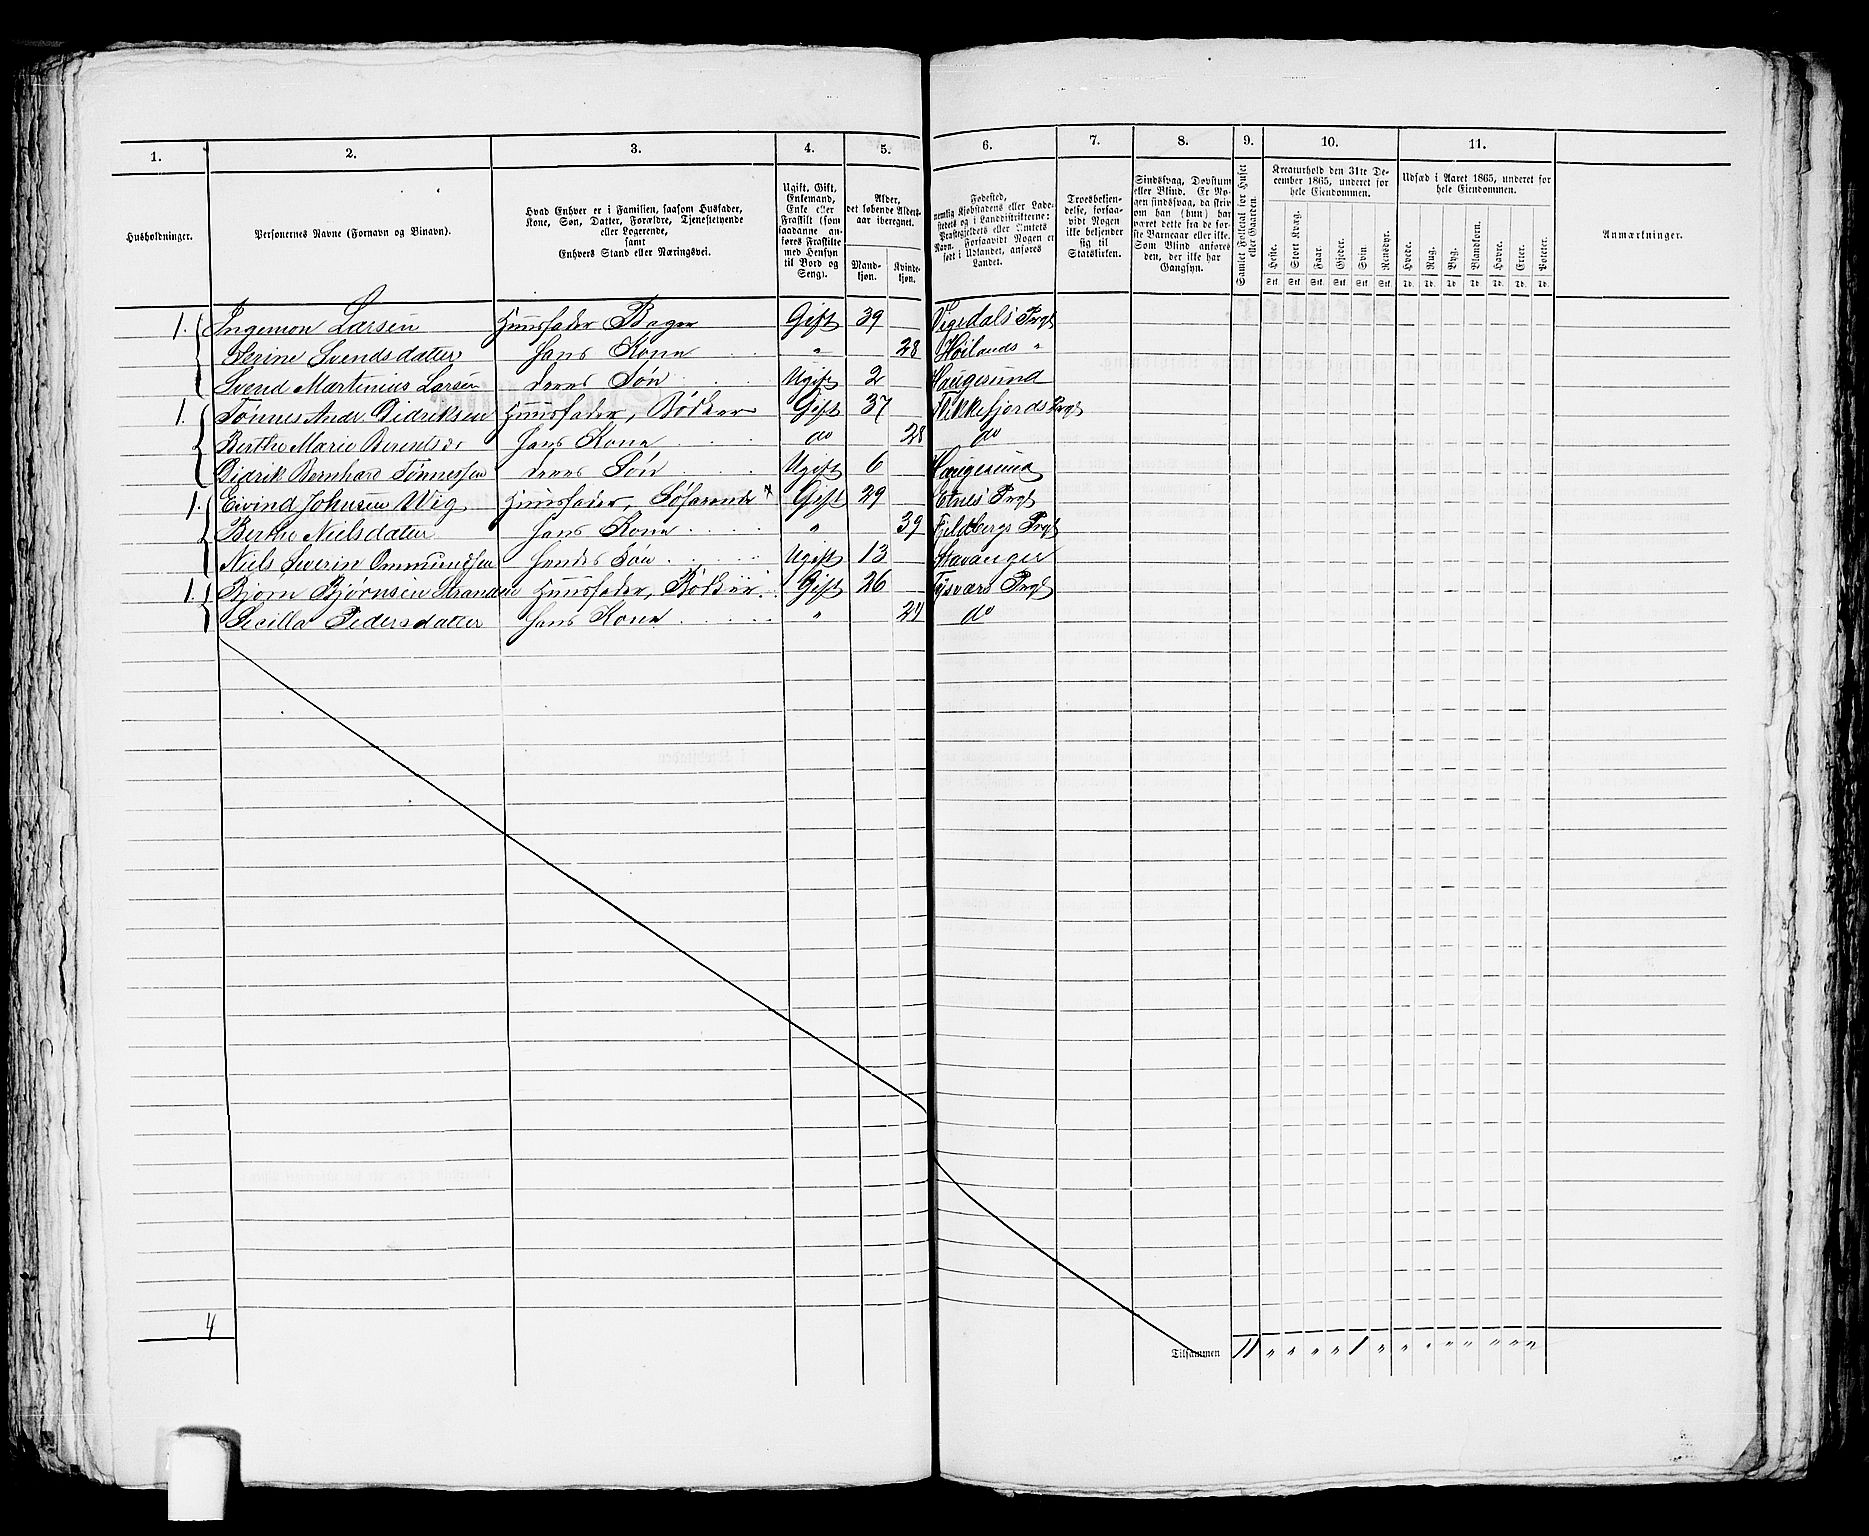 1. 2. 3. 4. 5. 6. 7. 8. 9. 10. 11.
Husholdninger.
Personernes Navne (Fornavn og Binavn).
Hvad Enhver er i Familien, saasom Husfader,
Kone, Søn, Datter, Forældre, Tjenestetyende
eller Logerende,
samt
Enhvers Stand eller Næringsvei.
Ugift, Gift,
Enkemand,
Enke eller
Fraskilt (som
saadanne an-
føres Fraskilte
med Hensyn
til Bord og
Seng).
Alder,
det løbende Alders-
aar iberegnet.
Mand-
kjøn.
Kvinde-
kjøn.
Fødested,
nemlig Kjøbstadens eller Lade-
stedets og i Landdistrikterne:
Præstegjeldets eller Amtets
Navn. Forsaavidt Nogen er
født i Udlandet, anføres
Landet.
Troesbekjen-
delse, forsaa-
vidt Nogen
ikke bekjender
sig til
Statskirken.
Sindssvag, Døvstum
eller Blind. Er No-
gen sindssvag, da skriv
om han (hun) har
været dette fra de før-
ste Barneaar eller ikke.
Som Blind anføres
den, der ikke har
Gangsyn.
Samlet Folketal for Huset
eller Gaarden.
Kreaturhold den 31te De-
cember 1865, underet for
hele Eiendommen.
Heste. Stort Kvæg. Faar. Gjeder. Svin. Rensdyr.
Stk. Stk. Stk. Stk. Stk. Stk.
Udsæd i Aaret 1865, underet for
hele Eiendommen.
Hvede. Rug. Byg. Blandkorn. Havre. Erter. Poteter.
Td. Td. Td. Td. Td. Td. Td.
Anmærkninger.
1. Ingemon Larsen Huusfader Bager Gift 39 Vigedals Prgl
Serine Svendsdatter Hans Kone " 28 Høilands "
Svend Martinius Larsen deres Søn Ugift 2 Haugesund
1. Tønnes Andr. Didriksen Huusfader, Bødker Gift 37 Flikkefjords Prgl
Berthe Marie Hans Kone do 28 do
Didrik Bernhard Tønnessen deres Søn Ugift 6 Haugesund
1. Eivind Johnsen Wig Huusfader, Søfarende Gift 29 Etnes Prgl
Berthe Nielsdatter Hans Kone " 39 Fjeldbergs Prgl
Niels Severin Ommundsen Hendes Søn Ugift 13 Stavanger
1. Bjørn Bjørnsen Stranden Huusfader, Bødker Gift 26 Tysværs Prgl
Secilla Pedersdatter Hans Kone " 24 do
4
Tilsammen 11 " " " " 1 " " " " " " " "